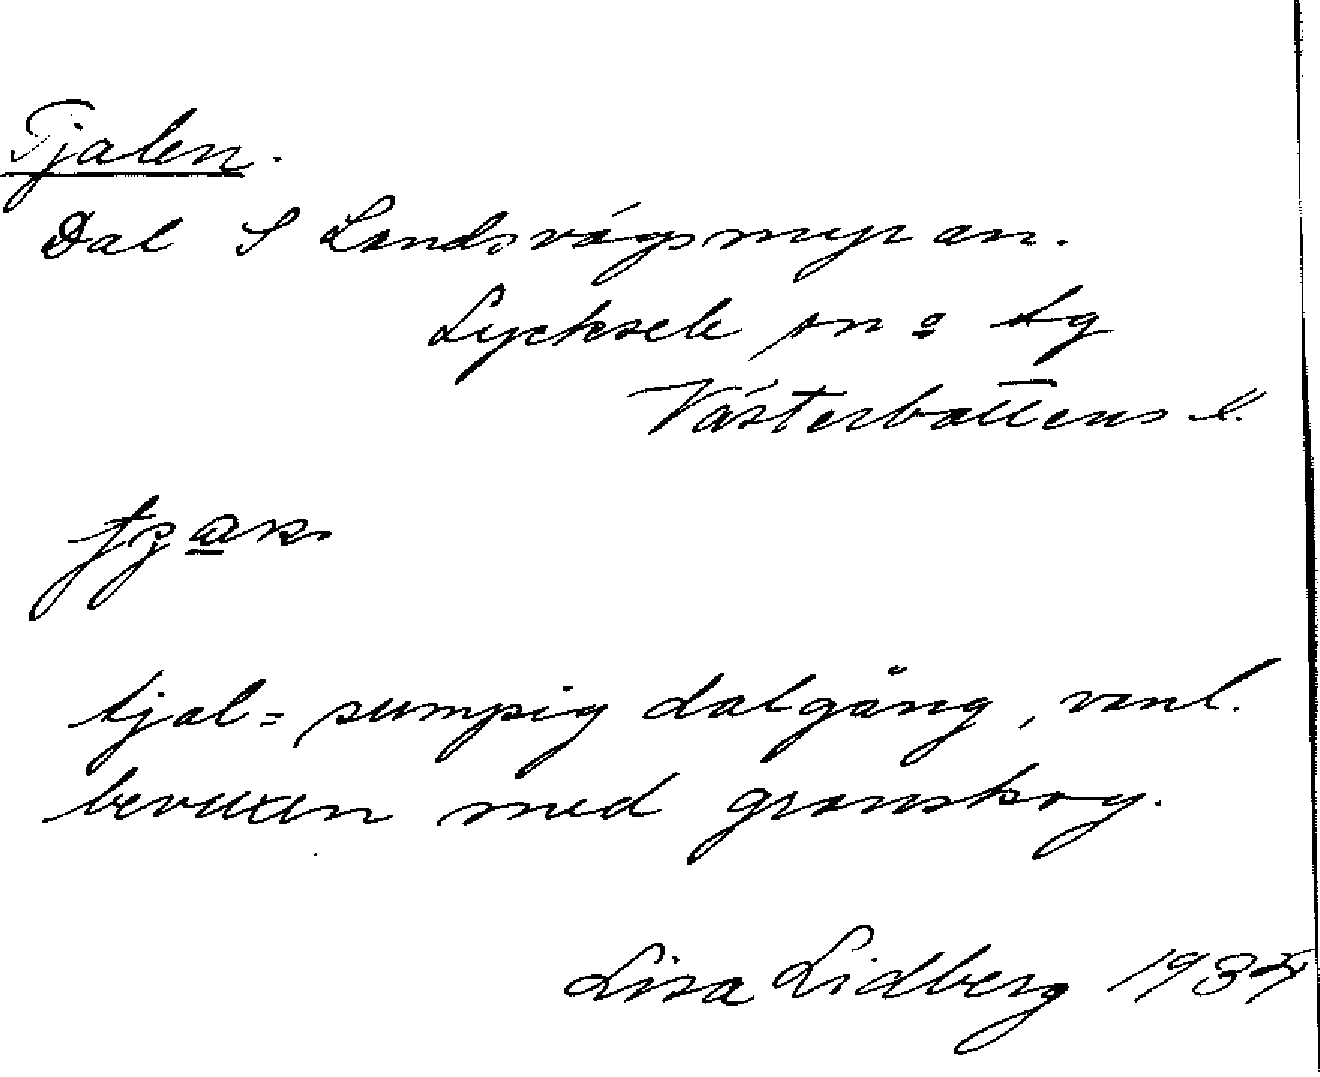 Tjalen.
Dal S Landsvägsmyran.
Lycksele sn o lg
Västerbottens l.
tjal = sumpig dalgång, vanl.
bevuxen med granskog.
Lisa Lidberg 1935